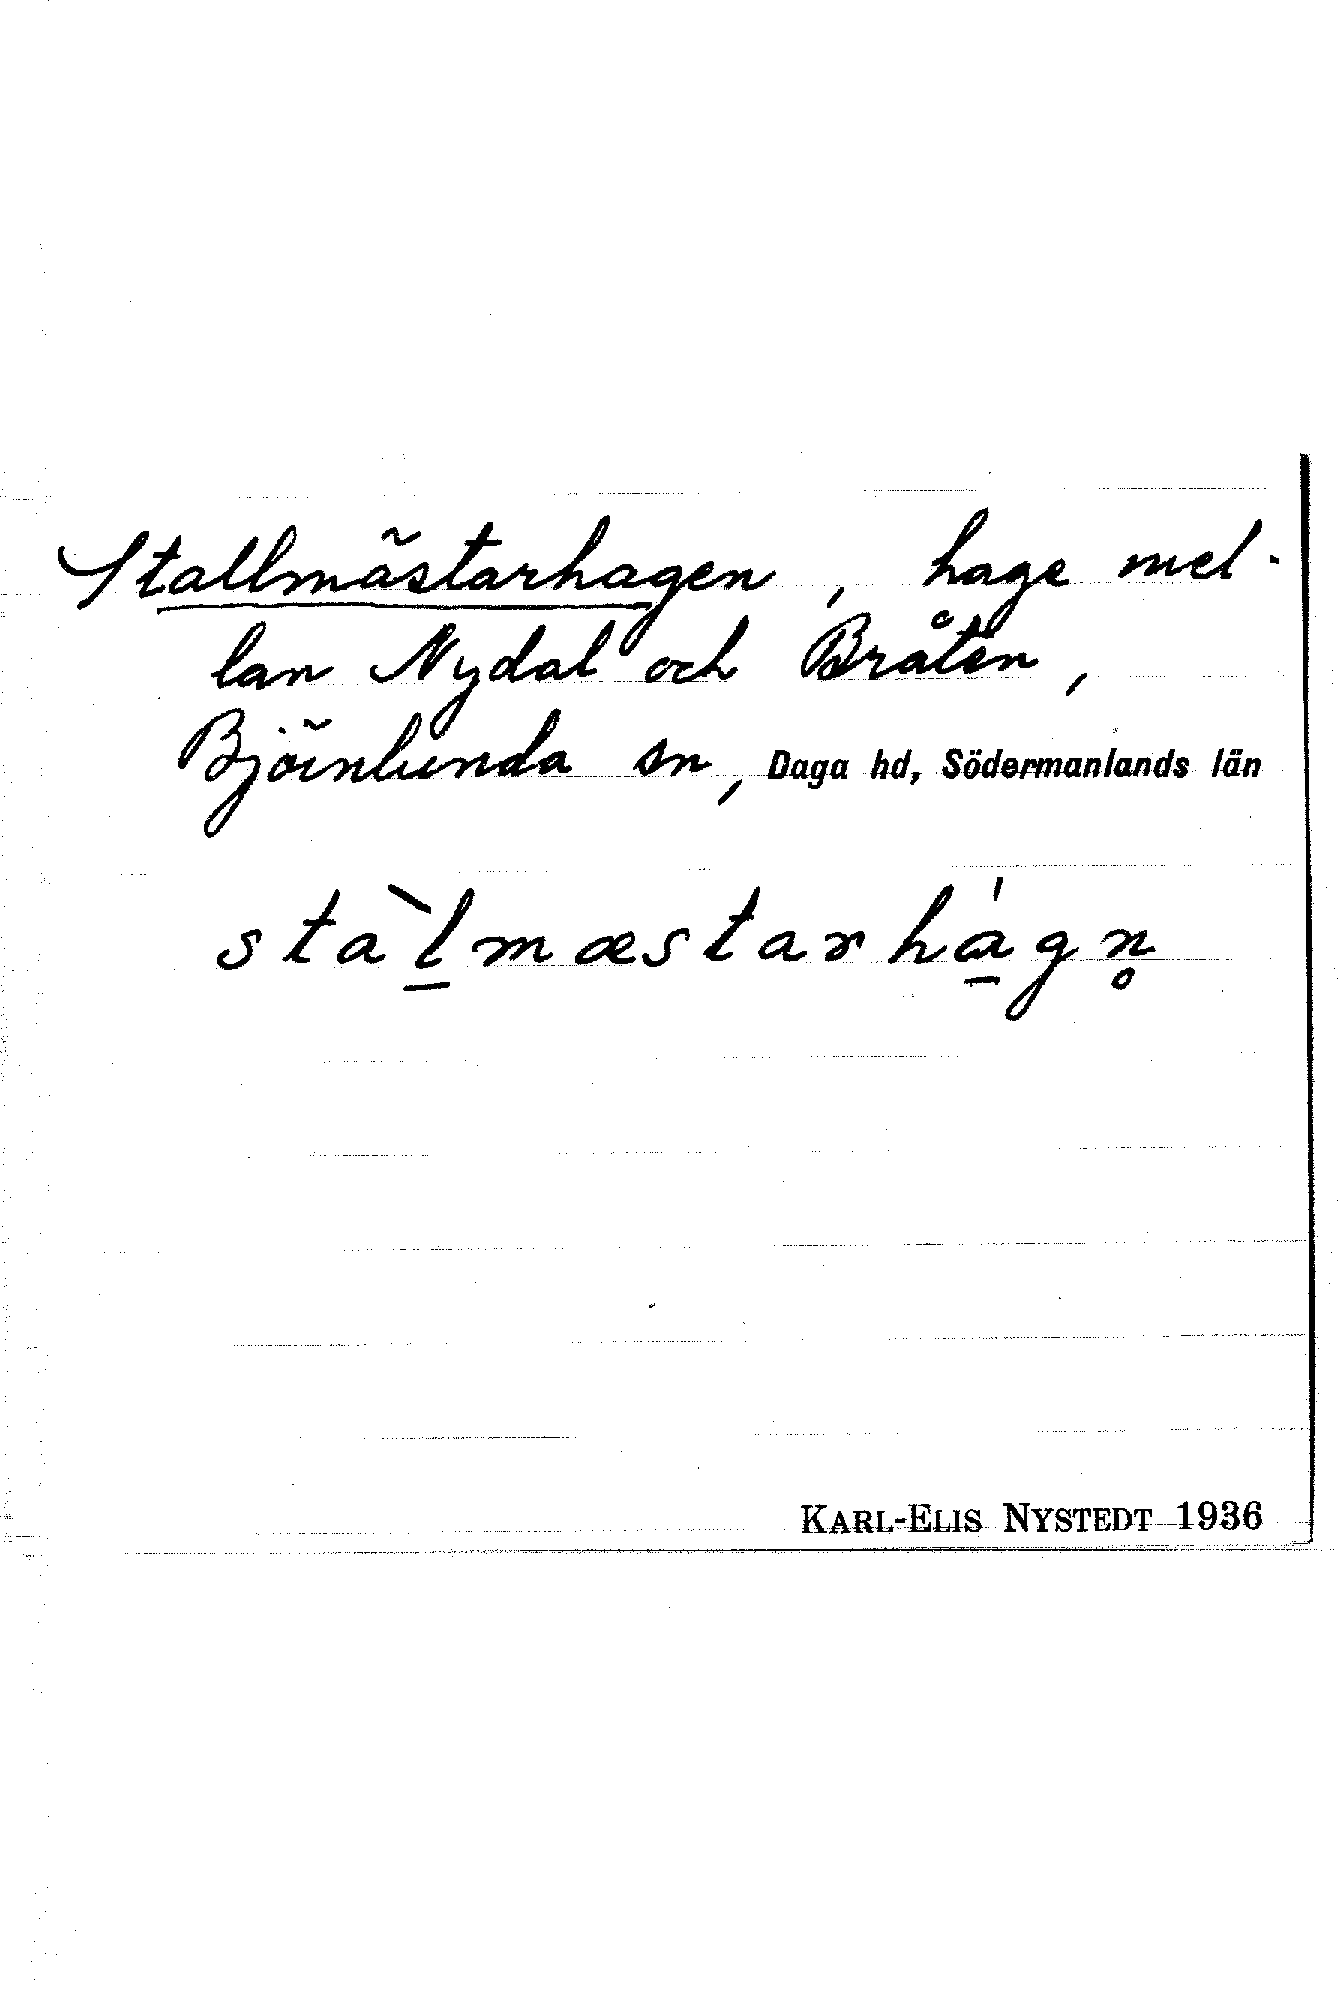 Stallmästarhagen, hage mel-
lan Nydal och Bråten,
Björnlunda sn, Daga hd, Södermanlands län
stal̲̀mæstarhá̲gn̥
KARL-ELIS NYSTEDT 1936